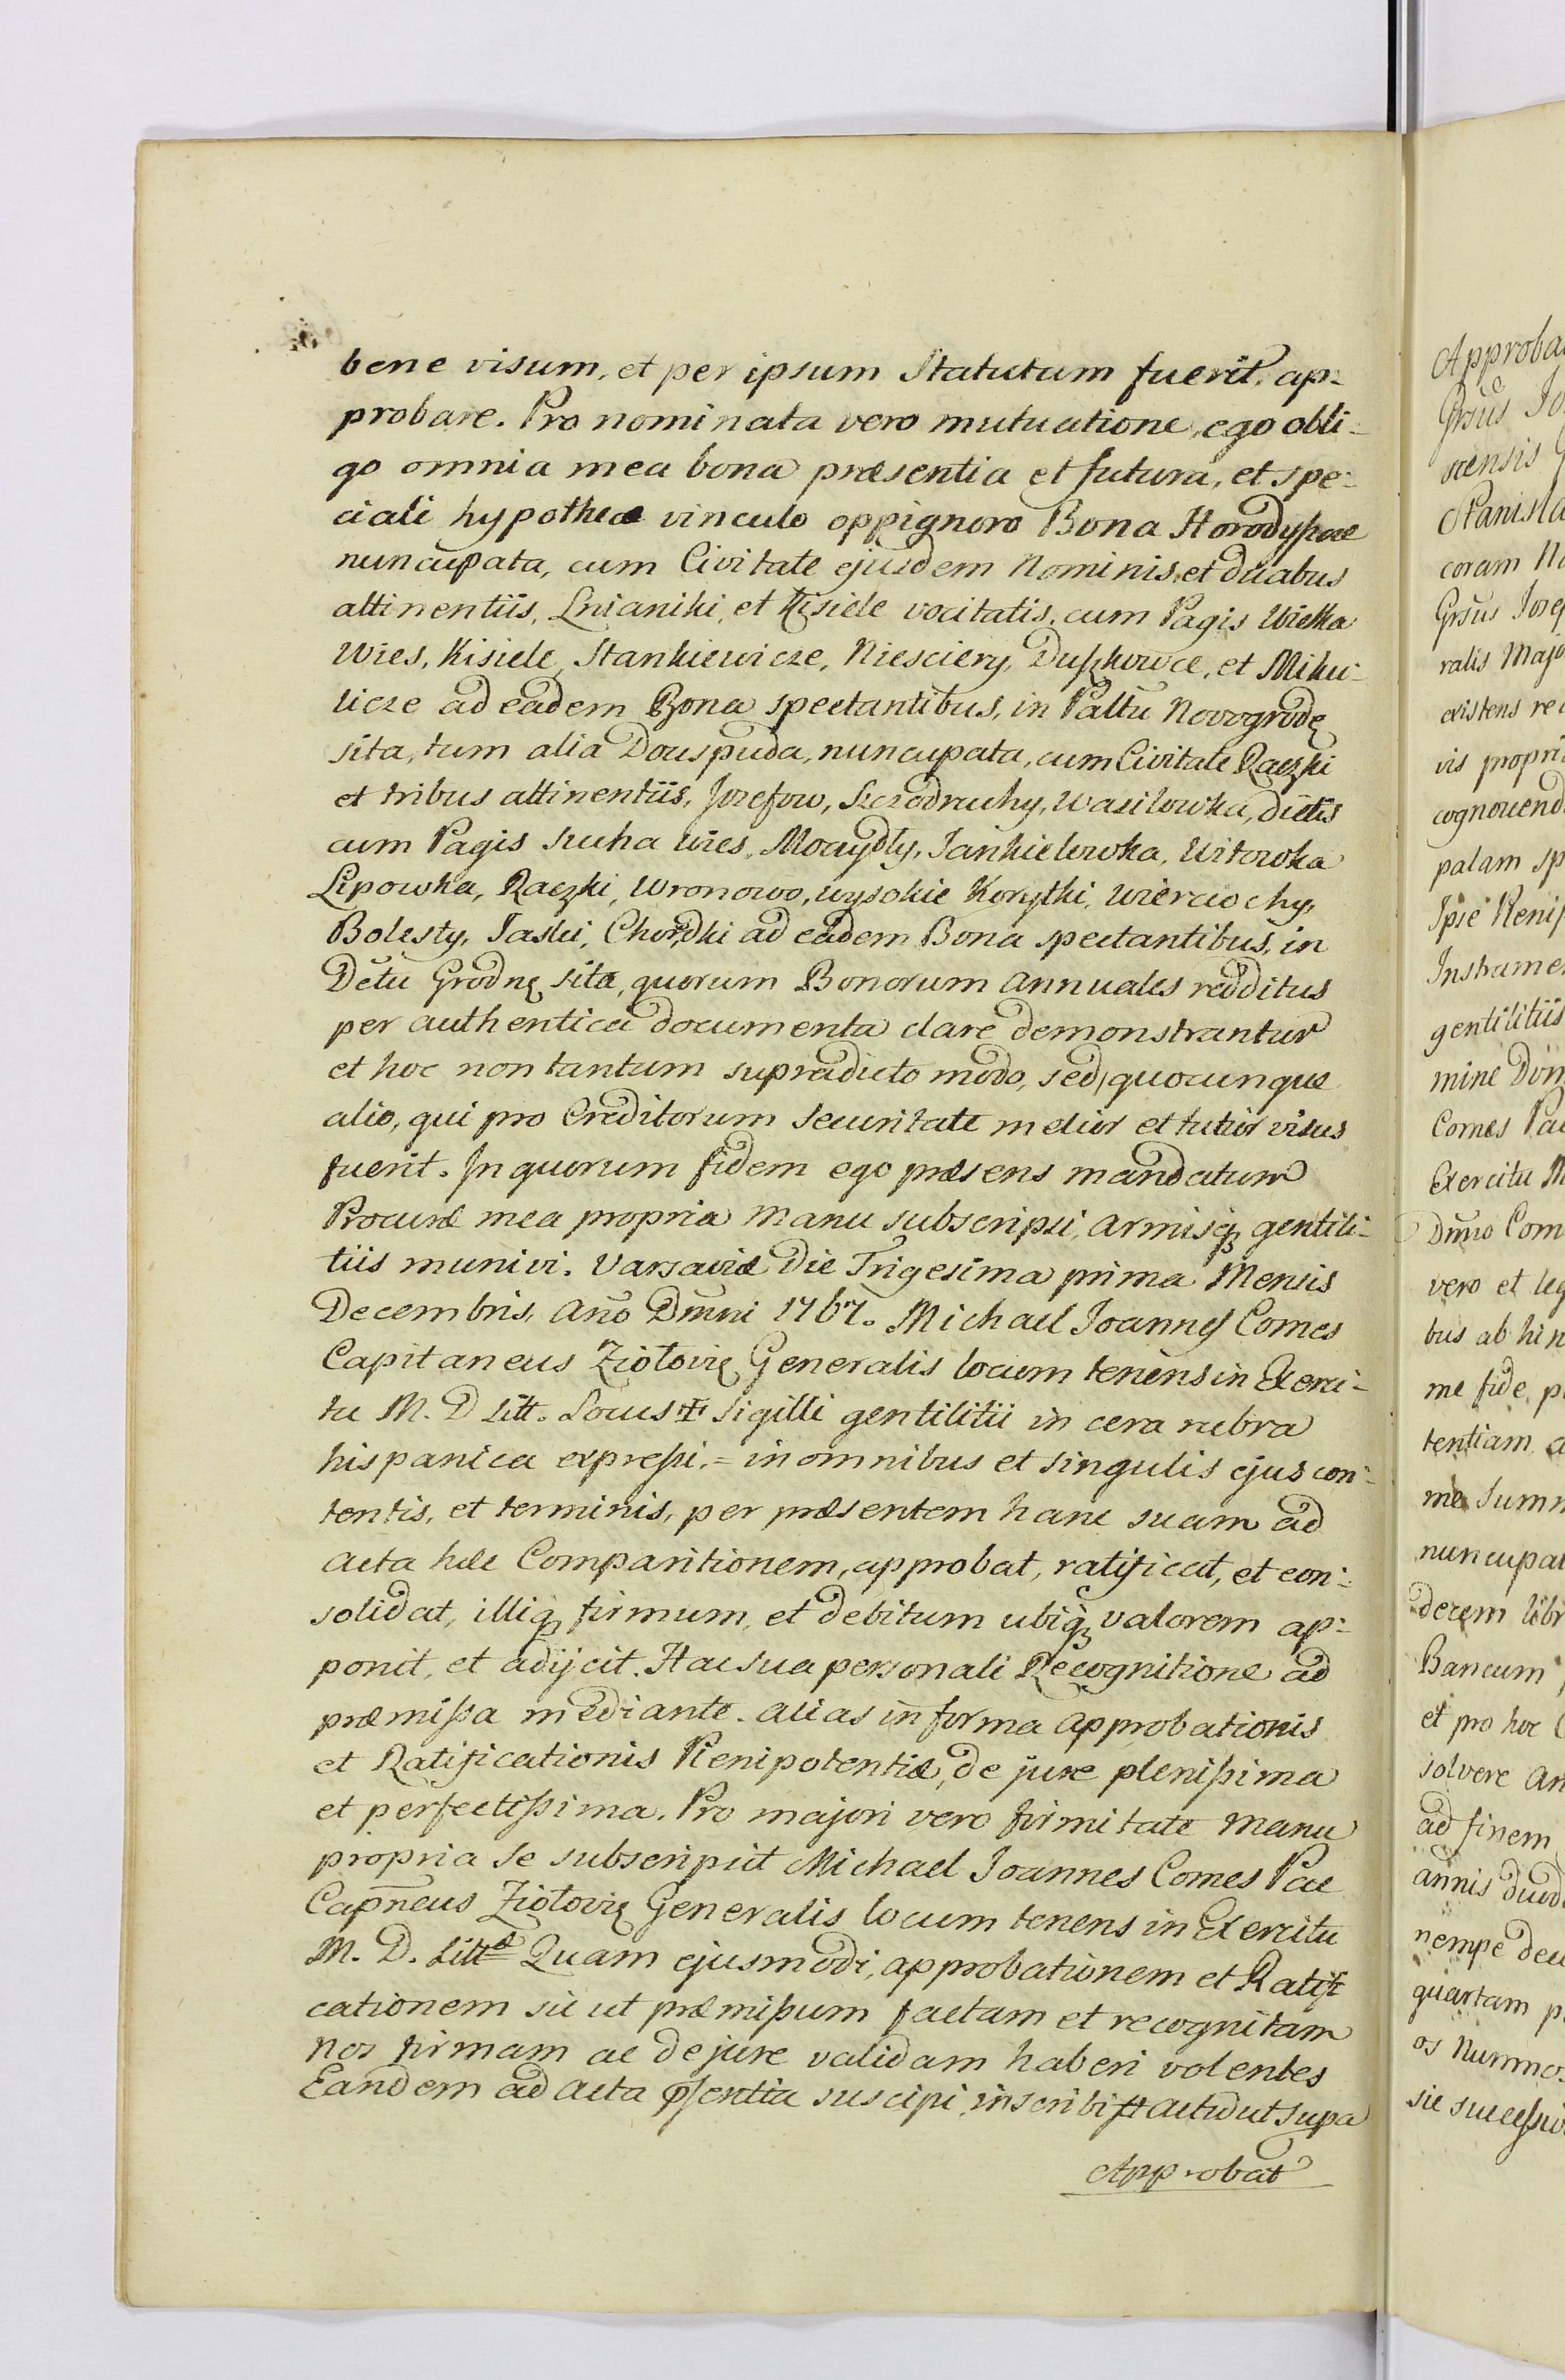 bene visum, et per ipsum Statutum fuerit, ap-
probare. Pro nominata vero mutuatione, ego obli-
go omnia mea bona præsentia et futura, et spe-
ciali hypothecæ vinculo oppignoro Bona Horodyszcze
nuncupata, cum Civitate ejusdem Nominis, et duabus
attinentiis, Lnianiki, et Kisiele vocitatis, cum Pagis Wielka
Wies, Kisiele, Stankiewicze, Niesciery, Duszkowce, et Miku-
licze ad eadem Bona spectantibus, in Paltu Novogrode
sita, tum alia Douspuda, nuncupata, cum Civitate Raczki
et tribus attinentiis, Jozefow, Szczodruchy, Wasilowka, dictis
cum Pagis Sucha Wies, Moczydły, Jankielowka, Witowka
Lipowka, Raczki, Wronowo, Wysokie Korytki, Wierciochy,
Bolesty, Jaski, Chordki ad eadem Bona spectantibus, in
Dctu Grodn sita, quorum Bonorum annuales redditus
per authentica documenta clare demonstrantur
et hoc non tantum supradicto modo, sed quocunque
alio, qui pro Creditorum Securitate melior et tutior visus
fuerit. In quorum fidem ego præsens mandatum
Procuræ mea propria manu subscripsi, armisq gentili-
tiis munivi. Varsaviæ Die Trigesima prima Mensis
Decembris, Año Dmni 1767. Michael Joannes Comes
Capitaneus Ziołovię Generalis locum tenens in Exerci-
tu M. D Litt. Locus Sigilli gentilitii in cera rubra
hispanica expreßi. = in omnibus et singulis ejus con-
tentis, et terminis, per præsentem hanc suam ad
acta hæc Comparitionem, approbat, ratificat, et con-
solidat, illiq firmum, et debitum ubiq valorem ap-
ponit, et adijcit. Hac sua personali Recognitione ad
præmißa mediante. alias in forma approbationis
et Ratificationis Plenipotentiæ, de jure plenißima
et perfectißima. Pro majori vero firmitate manu
propria se subscripsit Michael Joannes Comes Pac
Capneus Ziołovię Generalis locum tenens in Exercitu
M. D. Litt Quam ejusmodi, approbationem et Ratifi
cationem sic ut præmißum factam et recognitam
nos firmam ac de jure validam haberi volentes
Eandem ad acta psentia suscipi, inscribi actu ut Supa
Approbat
Approba
Grsus Jo
scensis
Stanisla
coram N
Grsus Jose
ralis Majo
existens re
vis propri
cognovend
palam sp
Ipse Reni
Instrume
gentilitiis
mine Dom
Comes Pa
Exercitu M
Dmno Com
vero et leg
bus ab hin
me fide p
tentiam a
me summ
nuncupat
decem libr
Bancum
et pro hoc
solvere an
ad finem
annis duod
nempe dec
quartam p
os nummos
sic succeßiv